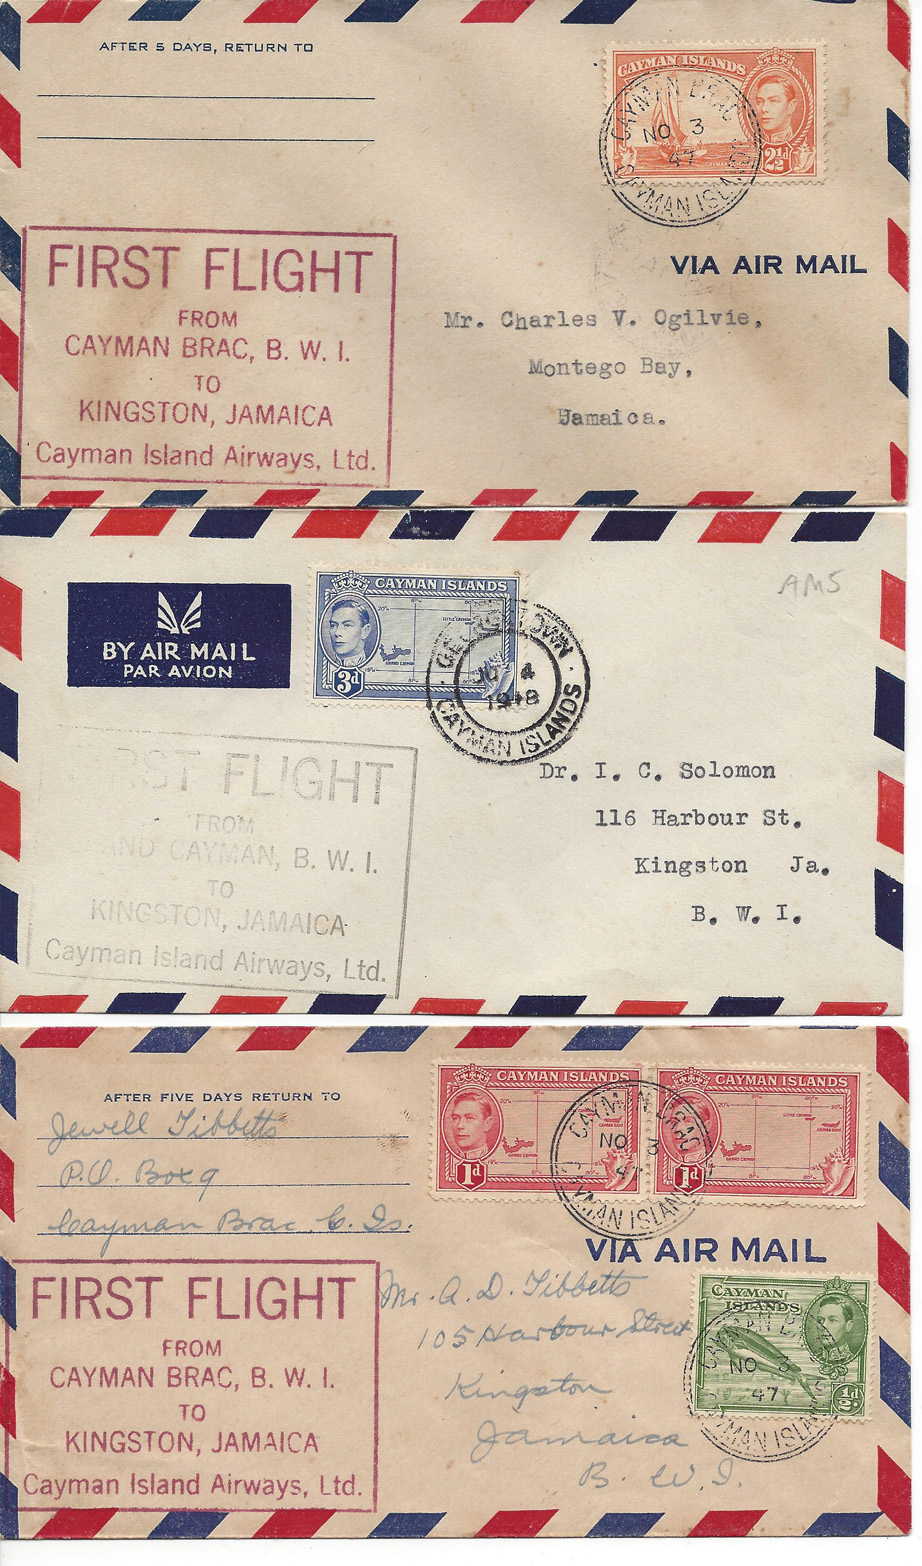 AFTER 5 DAYS, RETURN TO
CAYMAN ISLANDS
2½d
CAYMAN BRAC
NO 3
47
CAYMAN ISLANDS
VIA AIR MAIL
FIRST FLIGHT
FROM
CAYMAN BRAC, B. W. I.
TO
KINGSTON, JAMAICA
Cayman Island Airways, Ltd.
Mr. Charles V. Ogilvie,
Montego Bay,
Jamaica.
BY AIR MAIL
PAR AVION
CAYMAN ISLANDS
3d
GEORGETOWN
JU 4
1948
CAYMAN ISLANDS
AM5
FIRST FLIGHT
FROM
AND CAYMAN, B. W. I.
TO
KINGSTON, JAMAICA
Cayman Island Airways, Ltd.
Dr. I. C. Solomon
116 Harbour St.
Kingston Ja.
B. W. I.
AFTER FIVE DAYS RETURN TO
Jewell Tibbetts
P.O. Box 9
Cayman Brac. C. Is.
CAYMAN ISLANDS
1d
CAYMAN ISLANDS
1d
CAYMAN BRAC
NO 3
47
CAYMAN ISLANDS
VIA AIR MAIL
FIRST FLIGHT
FROM
CAYMAN BRAC, B. W. I.
TO
KINGSTON, JAMAICA
Cayman Island Airways, Ltd.
Mr. A. D. Tibbetts
105 Harbour Street
Kingston
Jamaica
B. W. I.
CAYMAN
ISLANDS
½d
CAYMAN BRAC
NO 3
47
CAYMAN ISLANDS